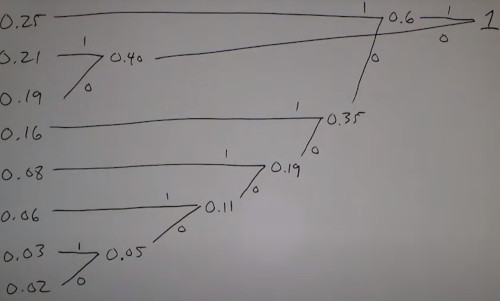 0.25 1 0.6 1 1
0.21 1 0.40 0
0.19 0 0
0.16 1 0.35
0.08 1 0.19 0
0.06 1 0.11 0
0.03 1 0.05 0
0.02 0